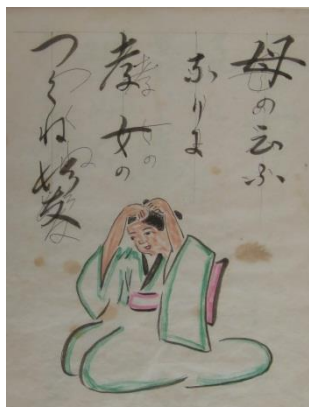 母の云ふ
なりに
孝女の
つくね髪